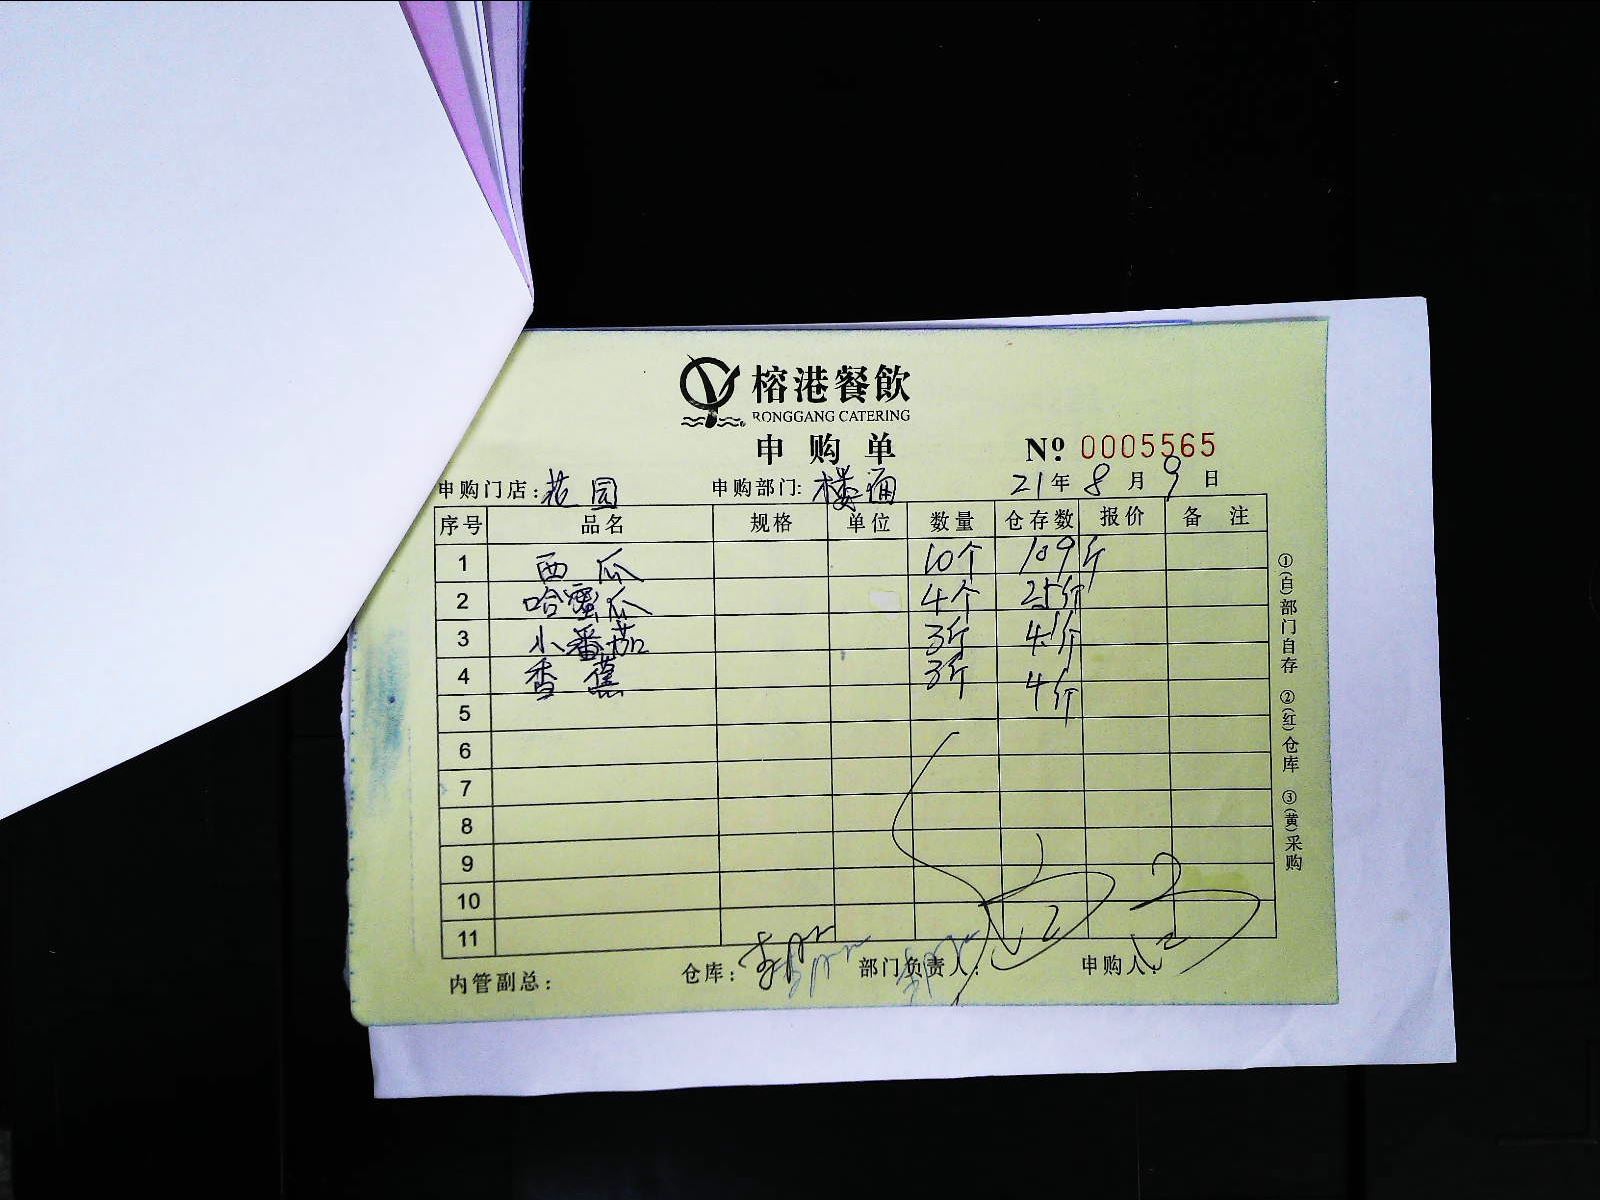 榕港餐飲
RONGGANG CATERING
申购单
Nº 0005565
申购门店:花园 申购部门:楼面 21年8月9日
序号 品名 规格 单位 数量 仓存数 报价 备注
1 西瓜 10个 109斤
2 哈蜜瓜 4个 25斤
3 小番茄 3斤 4.1斤
4 香蕉 3斤 4斤
5
6
7
8
9
10
11
内管副总: 仓库: 部门负责人: 申购人:
①(白)部门自存 ②(红)仓库 ③(黄)采购